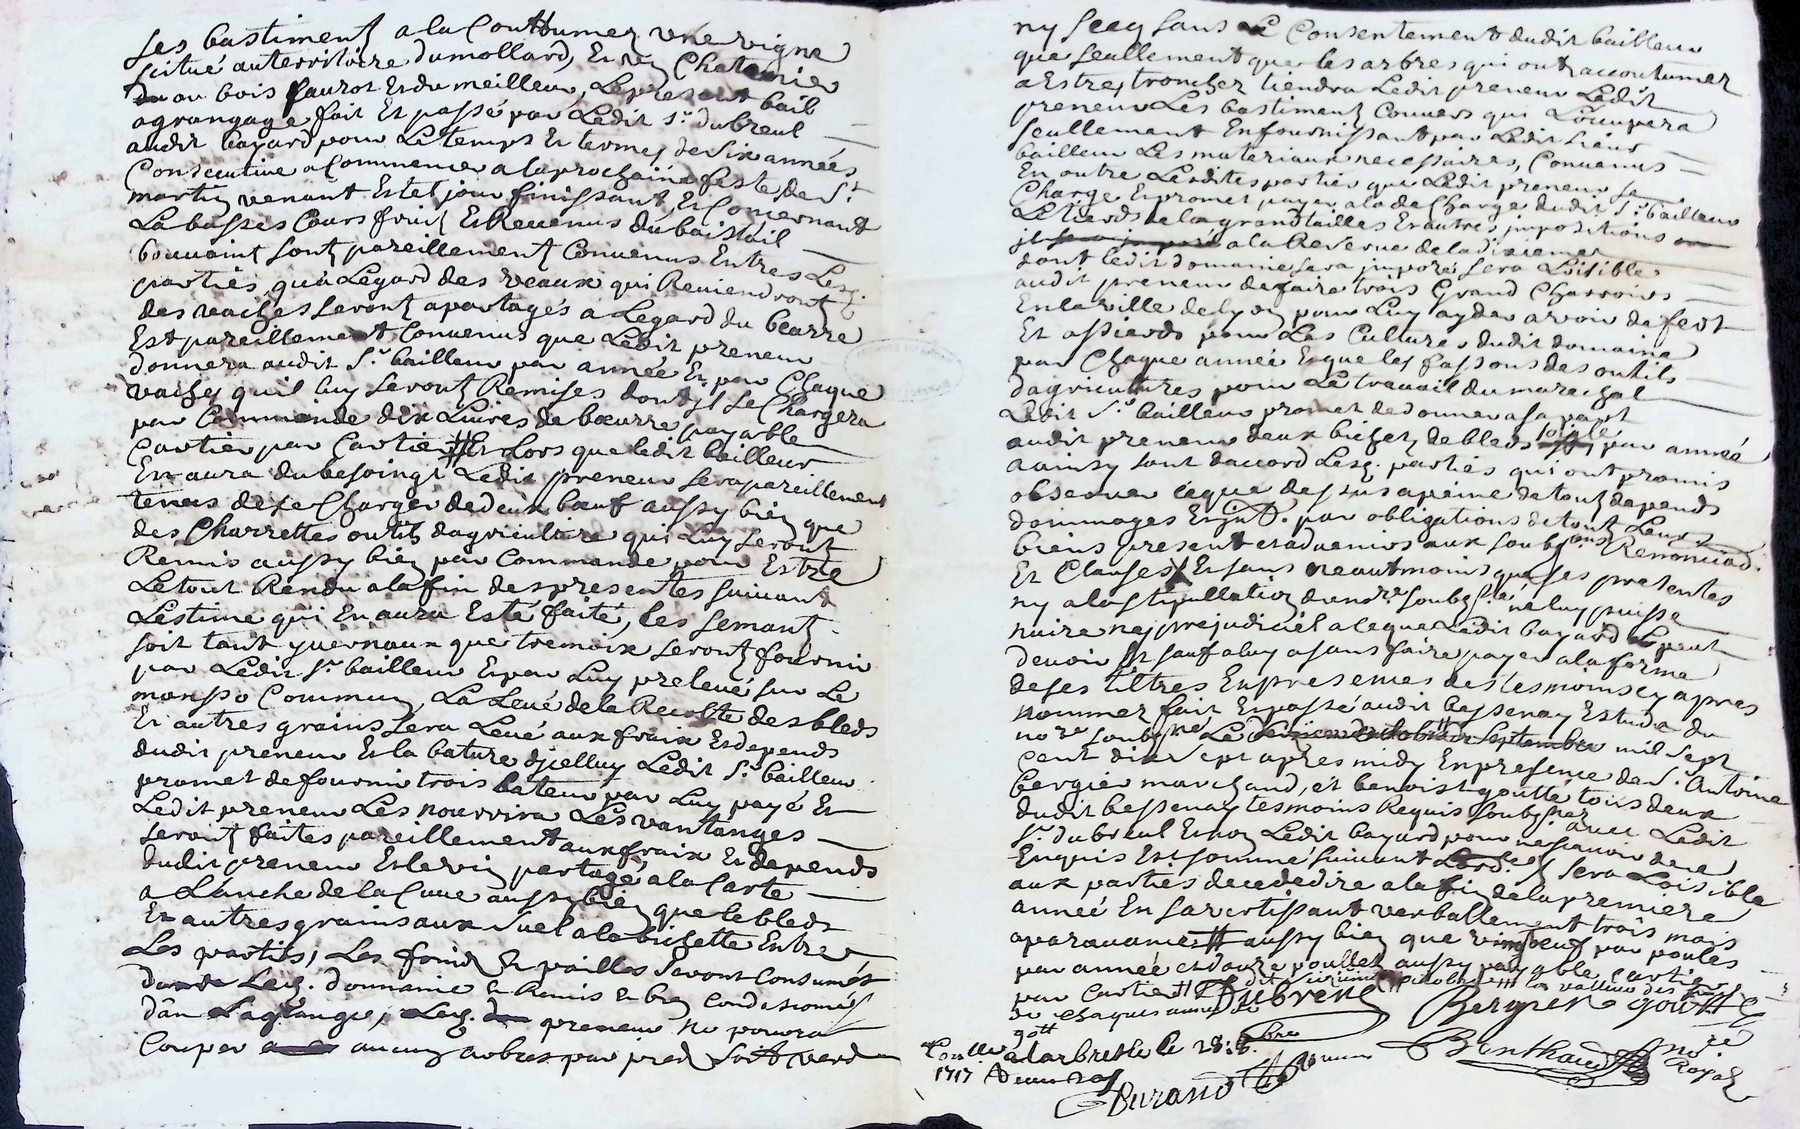 les bastiment a la Couttumez une vigne
scitué au territoire du mollard, En
ou bois fauzot Et du meilleur, Le present bail
agrangage fait Et passé par Ledit sr. dubreul
audit bayard pour Le temps Et termes de six années
Consecutive a Commencer a la prochaine feste de St.
martin venant Et tel jour finissant, Et Concernant
La basses Cours fruit Et Revenus du baistail
sont pareillement Convenus Entres Lesq.
partiés, qua Legard des veaux qui Reviendront
des vaches seront apartagés a Legard du beurre
Est pareillement Convenus que Ledit preneur
donnera audit Sr. bailleur par année Et par Chaque
vaches quil luy seront Remises dont il se Chargera
par Commande dix Livres de beurre payable
Cartier par Cartier # Et Lors que ledit bailleur
En aura du besoingt Ledit preneur sera pareillement
tenus de se Charger de deux beuf aussy bien que
des Charrettes outils dagriculture qui Luy seront
Remis aussy bien par Commande pour Estre
Le tout Rendu a la fin des presentes suivant
Lestime qui En aura Esté faité, les semant
soit tant yvernaux que tremoix seront fourni
par Ledit Sr. bailleur Et par Luy prelevé sur Le
Commun, La Levé de la Recolte des bleds
Et autres grains sera Levé aux fraix Et depends
dudit preneur Et la bature Ledit Sr. bailleur
promet de fourni trois bateur par Luy payé Et
Ledit preneur Les nourrira Les vantanges
seront faites pareillement aux fraix Et depends
dudit preneur Et le vin partagé a la Carte
a Lanche de la Cuve aussy bien que le bleds
Et autres grains aux suel a la bichette Entre
Les partiés, Les foins Et pailles seront Consumés
Lesq. dommaine Et Remis
Lagrange, preneur ne pourra
Couper aucun arbres par pied soit verd
ny secq sans Le Consentement dudit bailleur
que seullement que les arbres qui ont accoutumez
a Estre, tronchez tiendra Ledit preneur Ledit
preneur Les bastiment Couvers qui L'occupera
seullement En fournissant par Ledit sieur
bailleur Les materiaux necessaires, Convenus
En outre Lesdites partiés que Ledit preneur se
Charge Et promet payer a la de Charge dudit Sr. bailleur
Le tierds de la grand tailles Et autres impositions
a la Reserve de la dixieme
dont ledit domaine sera imposé sera Loisible
audit preneur de faire trois Grand Charrois
En la ville de Lyon pour Luy ayder avoir de fert
Et assierds pour Les Cultures dudit domaine
par Chaque année Et que les fassons des outils
dagricultures pour Le travail du marechal
Ledit Sr. bailleur promet de donner a sa part
audit preneur deux bichets de bleds soigle par année
a ainsy sont daccord Lesq. partiés qui ont promis
observer ceque dessus a peine de tout depends
dommages Et Int. par obligations de tout Leurs
biens present et advenirs aux soubs.ons Renonciad.
Et Clauses, Et sans neautmoins que les presentes
ny a la stipullation du no.re soubsg.né ne luy puisse
nuire ne prejudiciel a ceque Ledit bayard Le peut
devoir Et sauf a luy a sans faire payer a la forme
de ses tiltres En presences des tesmoins cy appres
nommez fait Et passé audit bessenay Estude du
no.re soubsgné Le septembre mil sept
cent dix sept apres midy En presence de Sr. Antoine
bergier marchand, et benoist goutte tous deux
dudit bessenay tesmoins Requis soubsgnez avec Ledit
Sr. dubreul Et non Ledit bayard pour ne scavoir de ce
Enquis Et sommé suivant Sera Loisible
aux parties de ce dedire a la fin de la premiere
année En savertissant verballement trois mois
aparavance # aussy bien que vingt oeuf par poules
par année et douze poullet aussy payable cartier
par cartier #
de chaques année
Dubreul Bergier goutte
gott
Conlle a Larbresle le 28: 8.bre
1717
Durand Bonthaud no.re Royal